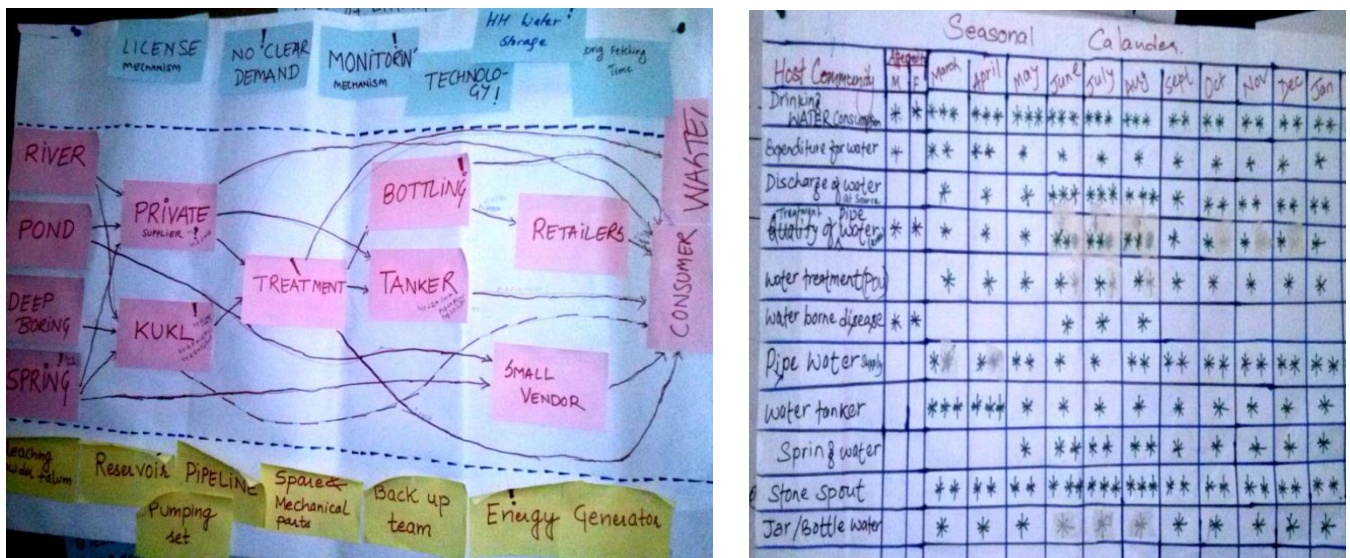 LICENSE
MECHANISM
!
NO CLEAR
DEMAND
!
MONITORIN'
MECHANISM
HH Water !
Storage
TECHNOLO-
GY!
ong Fetching
Time
RIVER
POND
DEEP
BORING
!
SPRING
PRIVATE
SUPPLIER !
!
KUKL
!
TREATMENT
!
BOTTLING
TANKER
RETAILERS
SMALL
VENDOR
CONSUMER WASTE/
eaching
Reservoir
PIPELINE
Pumping
set
Spare &
Mechanical
parts
Back up
team
!
Energy
Generator
Seasonal Calander.
Host Community M F March April May June July Aug Sept Oct Nov Dec Jan
Drinking
WATER Consumption * * *** *** *** *** *** *** ** ** ** ** **
Expenditure for water * ** ** * * * * * * * * *
Discharge of water
at Source * * * *** *** *** * ** ** ** **
Treatment Pipe
Quality of Water * * * * * ** ** ** * * * * *
Water treatment (POU) * * * * * * * * * * *
Water borne disease * * * * *
Pipe Water Supply ** * ** * * ** ** ** ** ** **
Water tanker *** *** * * * * * * * * *
Spring water * ** ** ** * * * * *
Stone spout ** ** ** *** *** *** ** ** ** ** **
Jar/Bottle Water * * * * * * * * * * *